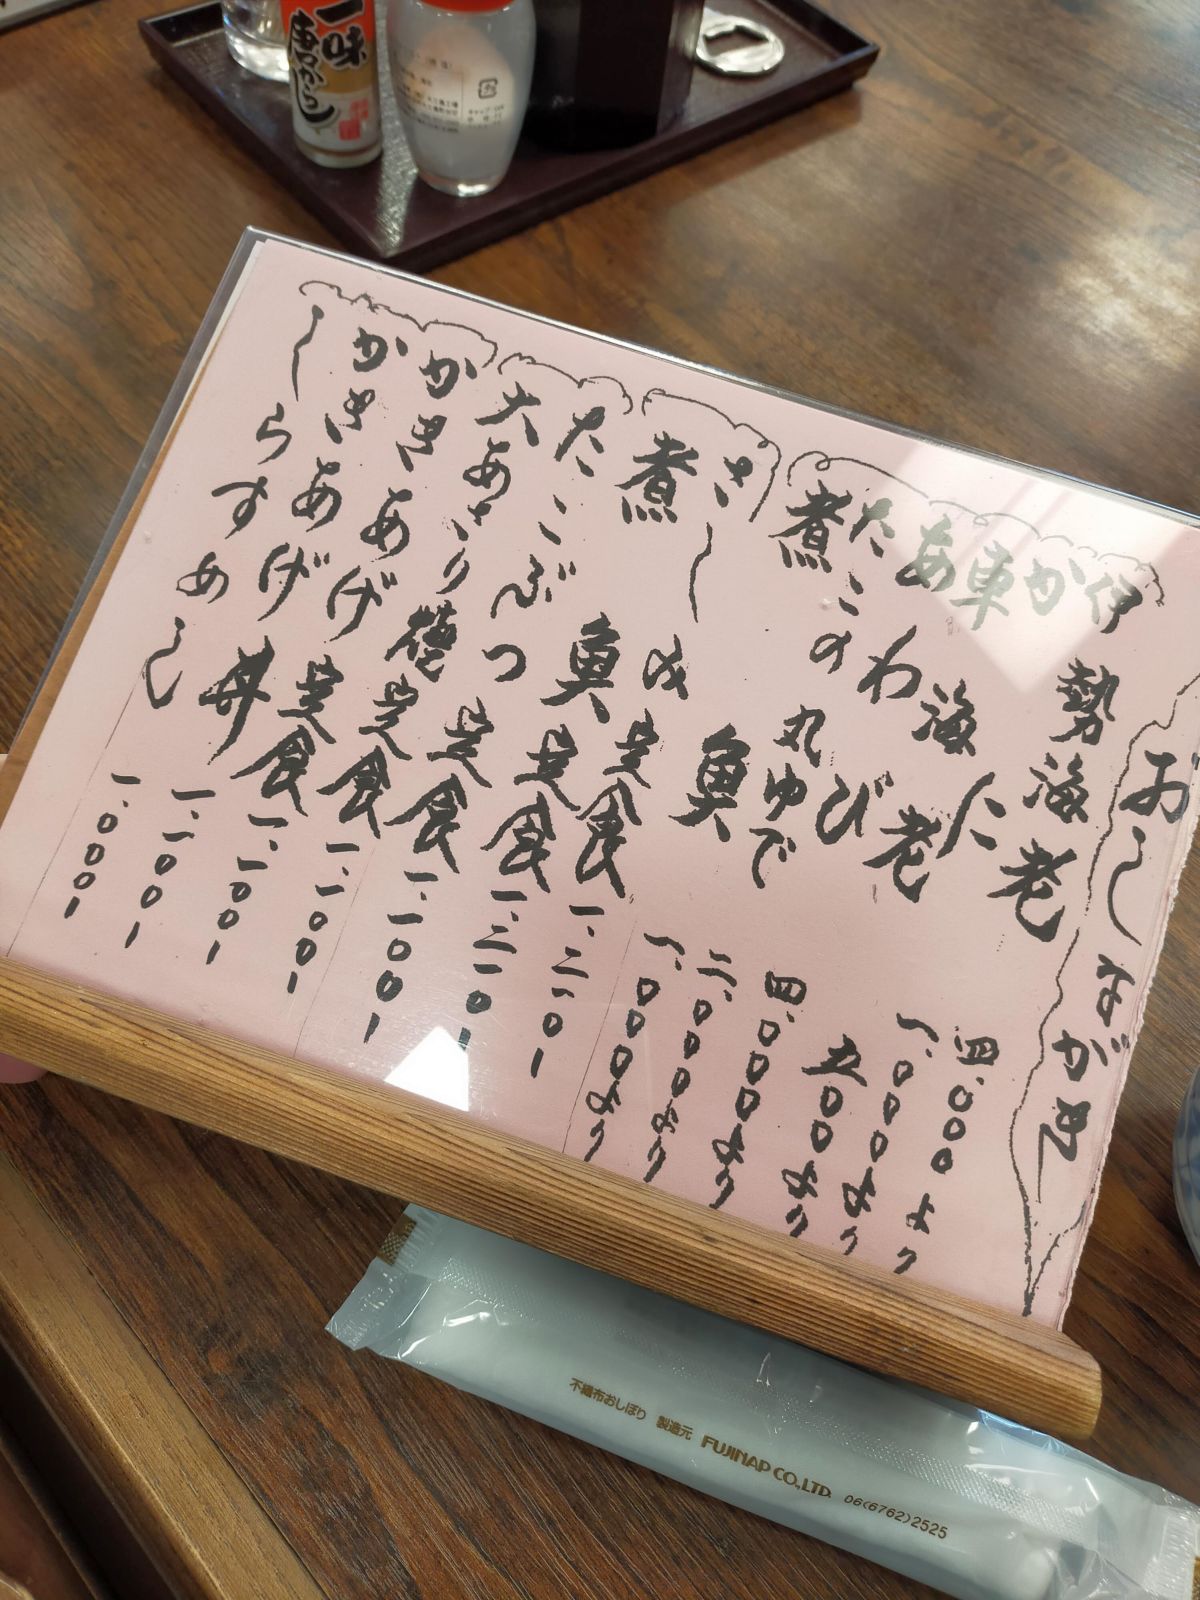 一味
唐がらし
おしながき
伊勢海老 四.000より
かに 一.000より
車海老 五00より
あわび 四.000より
たこの丸ゆで 二.000より
煮魚 一.000より
さしみ定食
煮魚定食
たこぶつ定食 一.一00-
大あさり焼定食 一.一00-
かきあげ定食 一.一00-
かきあげ丼 一.一00-
しらすめし 一.000-
不織布おしぼり 製造元 FUJINAP CO.,LTD. 06(6762)2525